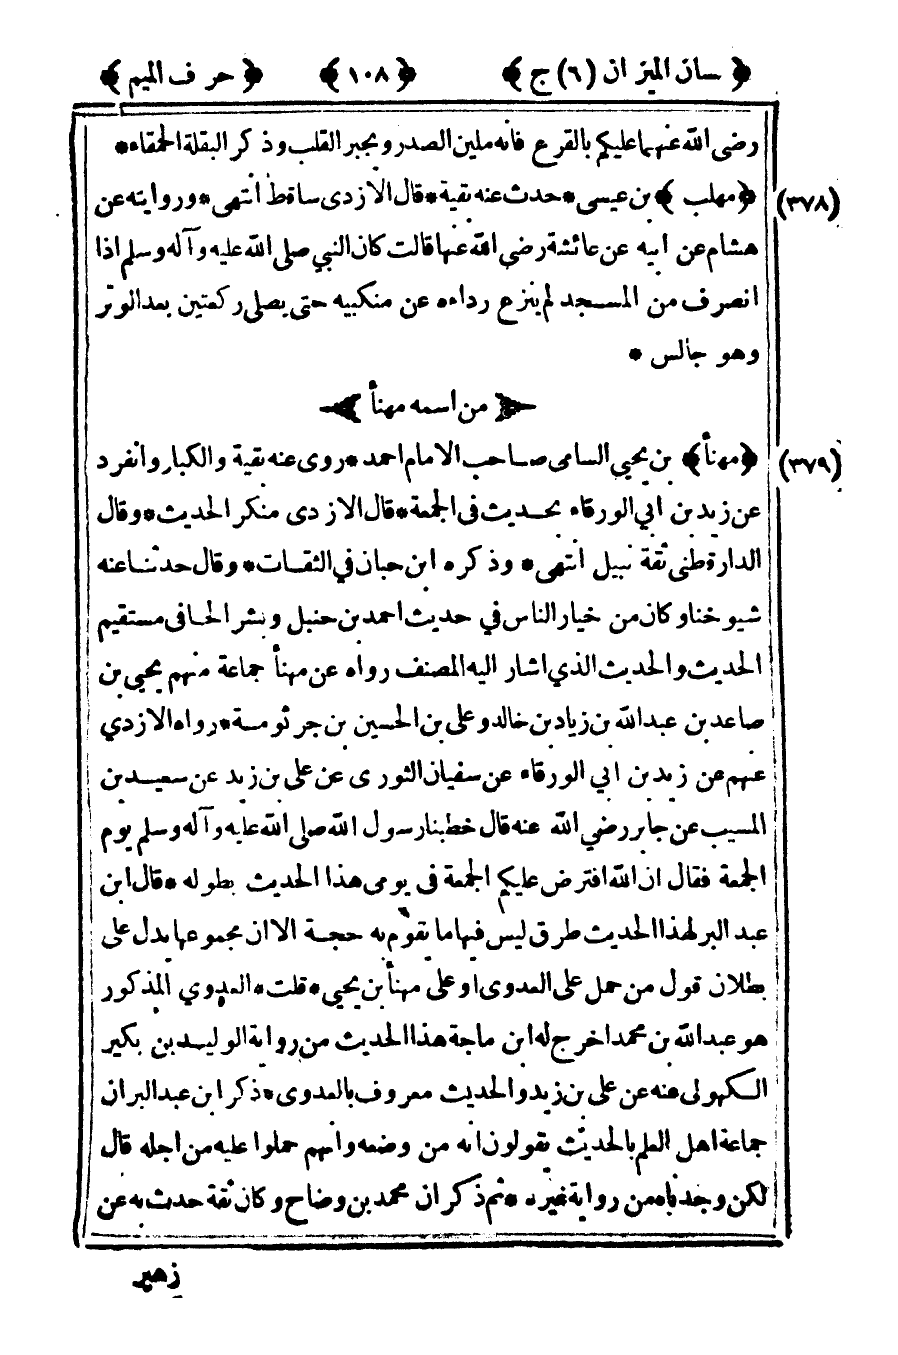 ﴿ سان الميزان (٦) ج ﴾ ﴿ ١٠٨ ﴾ ﴿ حرف الميم ﴾
رضى الله عنهما عليكم بالقرع فانه ملين الصدر ويجبر القلب وذكر البقلة الحمقاء *
﴿ مهلب ﴾ بن عيسى * حدث عنه بقية * قال الازدى ساقط انتهى * وروايته عن (٣٧٨)
هشام عن ابيه عن عائشة رضى الله عنها قالت كان النبي صلى الله عليه وآله وسلم اذا
انصرف من المسجد لم ينزع رداءه عن منكبيه حتى يصلي ركعتين بعد الوتر
وهو جالس *
﴿ من اسمه مهنأ ﴾
﴿ مهنأ ﴾ بن يحيى السامى صاحب الامام احمد * روى عنه بقية والكبار وانفرد (٣٧٩)
عن زيد بن ابي الورقاء بحديث في الجمعة * قال الازدى منكر الحديث * وقال
الدارقطنى ثقة نبيل انتهى * وذكره ابن حبان في الثقات * وقال حدثنا عنه
شيوخنا وكان من خيار الناس في حديث احمد بن حنبل وبشر الحافى مستقيم
الحديث والحديث الذي اشار اليه المصنف رواه عن مهنأ جماعة منهم يحيى بن
صاعد بن عبدالله بن زياد بن خالد وعلى بن الحسين بن جرثومة * رواه الازدي
عنهم عن زيد بن ابي الورقاء عن سفيان الثورى عن على بن زيد عن سعيد بن
المسيب عن جابر رضي الله عنه قال خطبنا رسول الله صلى الله عليه وآله وسلم يوم
الجمعة فقال ان الله افترض عليكم الجمعة فى يومى هذا الحديث بطوله * قال ابن
عبد البر لهذا الحديث طرق ليس فيها ما يقوم به حجة الا ان مجموعها يدل على
بطلان قول من حمل على العدوى او على مهنأ بن يحيى * قلت * العدوي المذكور
هو عبدالله بن محمد اخرج له ابن ماجة هذا الحديث من رواية الوليد بن بكير
الكهولى عنه عن على بن زيد والحديث معروف بالعدوى * ذكر ابن عبد البر ان
جماعة اهل العلم بالحديث يقولون انه من وضعه وانهم حملوا عليه من اجله قال
لكن وجدناه من رواية غيره * ثم ذكر ان محمد بن وضاح وكان ثقة حدث به عن
زهير